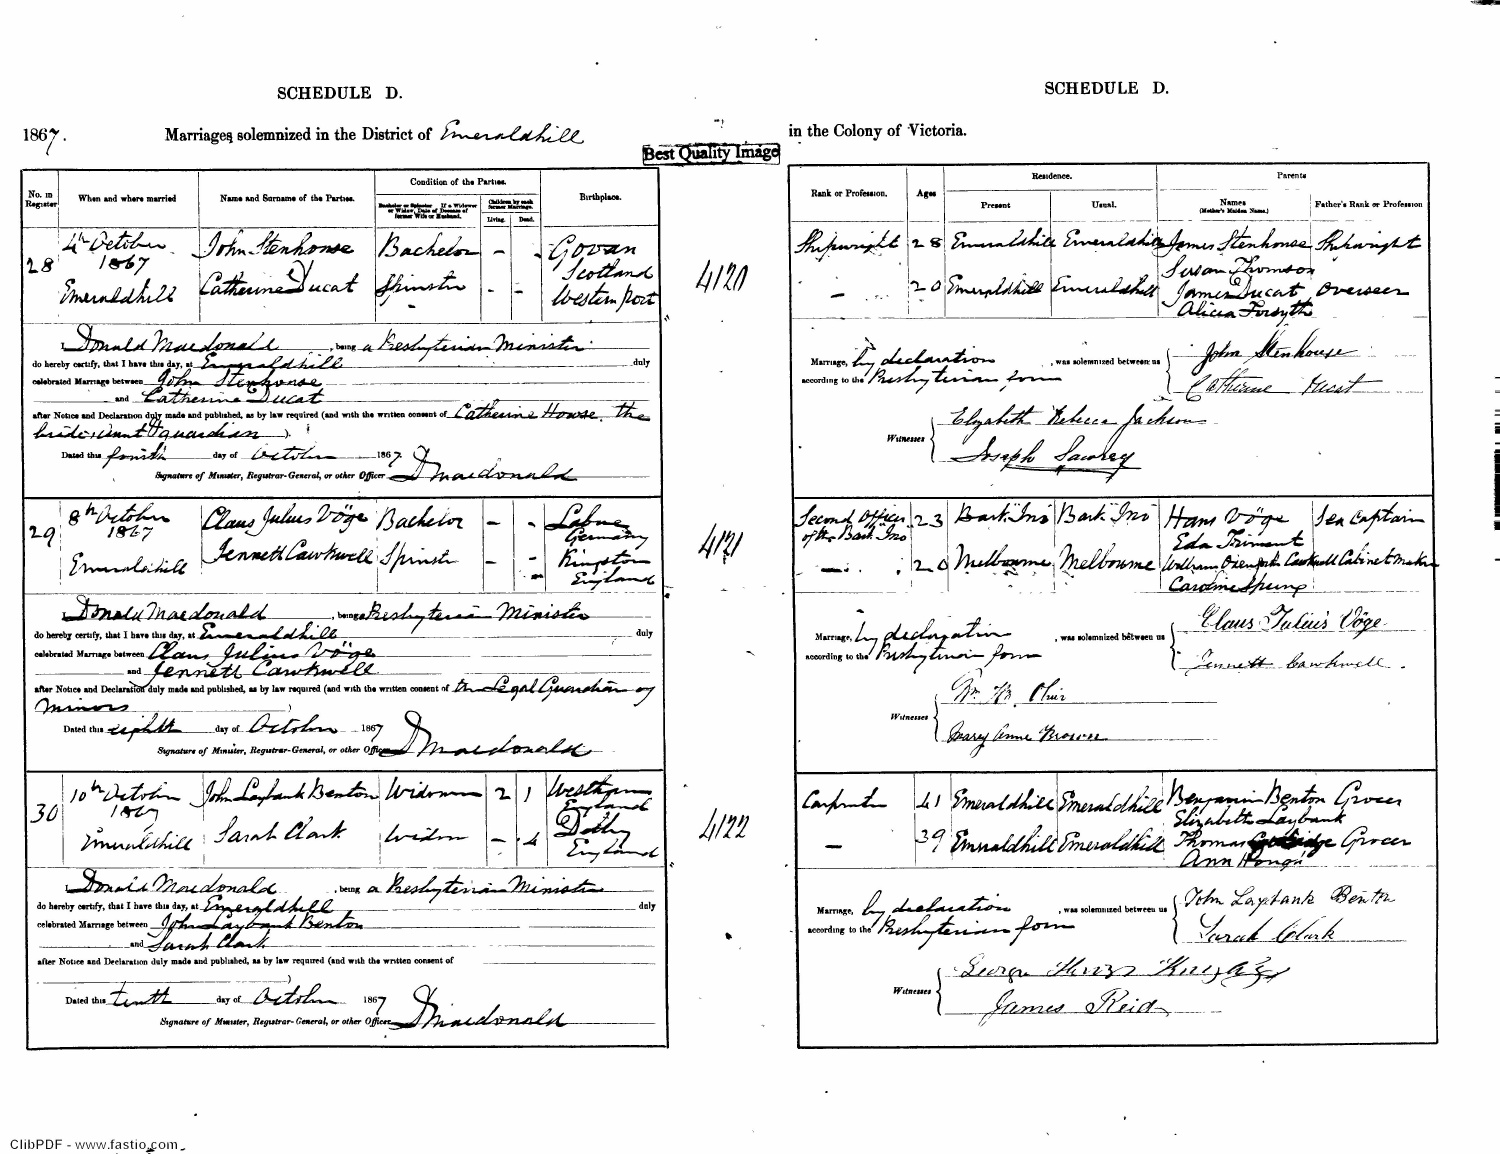 SCHEDULE D.
1867. Marriages solemnized in the District of Emeraldhill
No. in Register
When and where married
Name and Surname of the Parties.
Condition of the Parties.
Bachelor or Spinster. If a Widower or Widow, Date of Decease of former Wife or Husband.
Children by each former Marriage.
Living. Dead.
Birthplace.
28
4th October 1867
Emeraldhill
John Stenhouse Bachelor - - Govan Scotland
Catherine Ducat Spinster - - Western port
I, Donald Macdonald, being a Presbyterian Minister
do hereby certify, that I have this day, at Emeraldhill duly
celebrated Marriage between John Stenhouse
and Catherine Ducat
after Notice and Declaration duly made and published, as by law required (and with the written consent of Catherine Howse, the
bride's aunt & guardian)
Dated this fourth day of October 1867
Signature of Minister, Registrar-General, or other Officer D Macdonald
29
8th October 1867
Emeraldhill
Claus Julius Vöge Bachelor - - Germany
Jennett Cawkwell Spinster - - Kingston England
I, Donald Macdonald, being a Presbyterian Minister
do hereby certify, that I have this day, at Emeraldhill duly
celebrated Marriage between Claus Julius Vöge
and Jennett Cawkwell
after Notice and Declaration duly made and published, as by law required (and with the written consent of the Legal Guardian of
Minors)
Dated this eighth day of October 1867
Signature of Minister, Registrar-General, or other Officer D Macdonald
30
10th October 1867
Emeraldhill
John Laybank Benton Widower 2 1 England
Sarah Clark Widow - 4 England
I, Donald Macdonald, being a Presbyterian Minister
do hereby certify, that I have this day, at Emeraldhill duly
celebrated Marriage between John Laybank Benton
and Sarah Clark
after Notice and Declaration duly made and published, as by law required (and with the written consent of
)
Dated this tenth day of October 1867
Signature of Minister, Registrar-General, or other Officer D Macdonald
Best Quality Image
4120
4121
4122
SCHEDULE D.
in the Colony of Victoria.
Rank or Profession.
Ages
Residence.
Present Usual.
Parents
Names (Mother's Maiden Name.)
Father's Rank or Profession
Shipwright 28 Emeraldhill Emeraldhill James Stenhouse Shipwright
Susan Thomson
- 20 Emeraldhill Emeraldhill James Ducat Overseer
Alicia Forsyth
Marriage, by declaration, was solemnized between us
according to the Presbyterian form
John Stenhouse
Catherine Ducat
Witnesses
Elizabeth Rebecca Jackson
Joseph Sawrey
Second Officer of the Bark Ino 23 Bark Ino Bark Ino Hans Vöge Sea Captain
Eda
- 20 Melbourne Melbourne William Cawkwell Cabinet Maker
Caroline
Marriage, by declaration, was solemnized between us
according to the Presbyterian form
Claus Julius Vöge
Jennett Cawkwell
Witnesses
Wm
Mary Anne Brown
Carpenter 41 Emeraldhill Emeraldhill Benjamin Benton Grocer
Elizabeth Laybank
- 39 Emeraldhill Emeraldhill Thomas Grocer
Ann
Marriage, by declaration, was solemnized between us
according to the Presbyterian form
John Laybank Benton
Sarah Clark
Witnesses
George
James Reid
ClibPDF - www.fastio.com